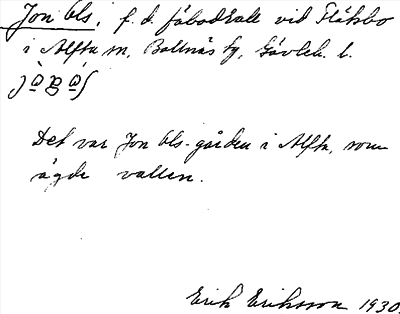 Jon Ols, f. d. fäbodställe vid Fläksbo
i Alfta sn, Bollnäs tg, Gävleb. l.
Det var Jon Ols-gården i Alfta, som
ägde vallen.
Erik Eriksson 1930.